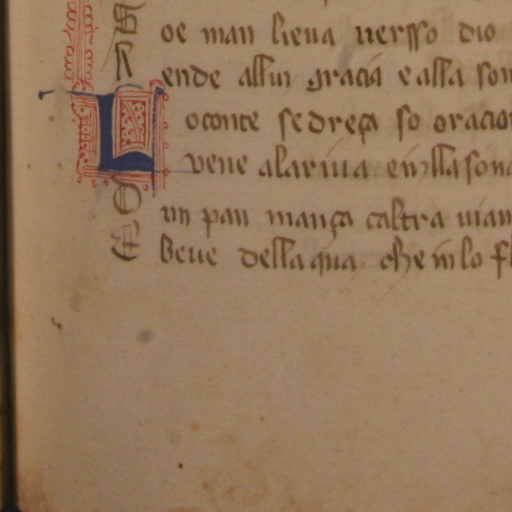 S oe man lieua uersso dio
R ende allui gracia e alla son
L o conte se dreça so oracion
vene ala riua e in lla sona
D un pan mança c altra uian
E beue della qua che in lo fl